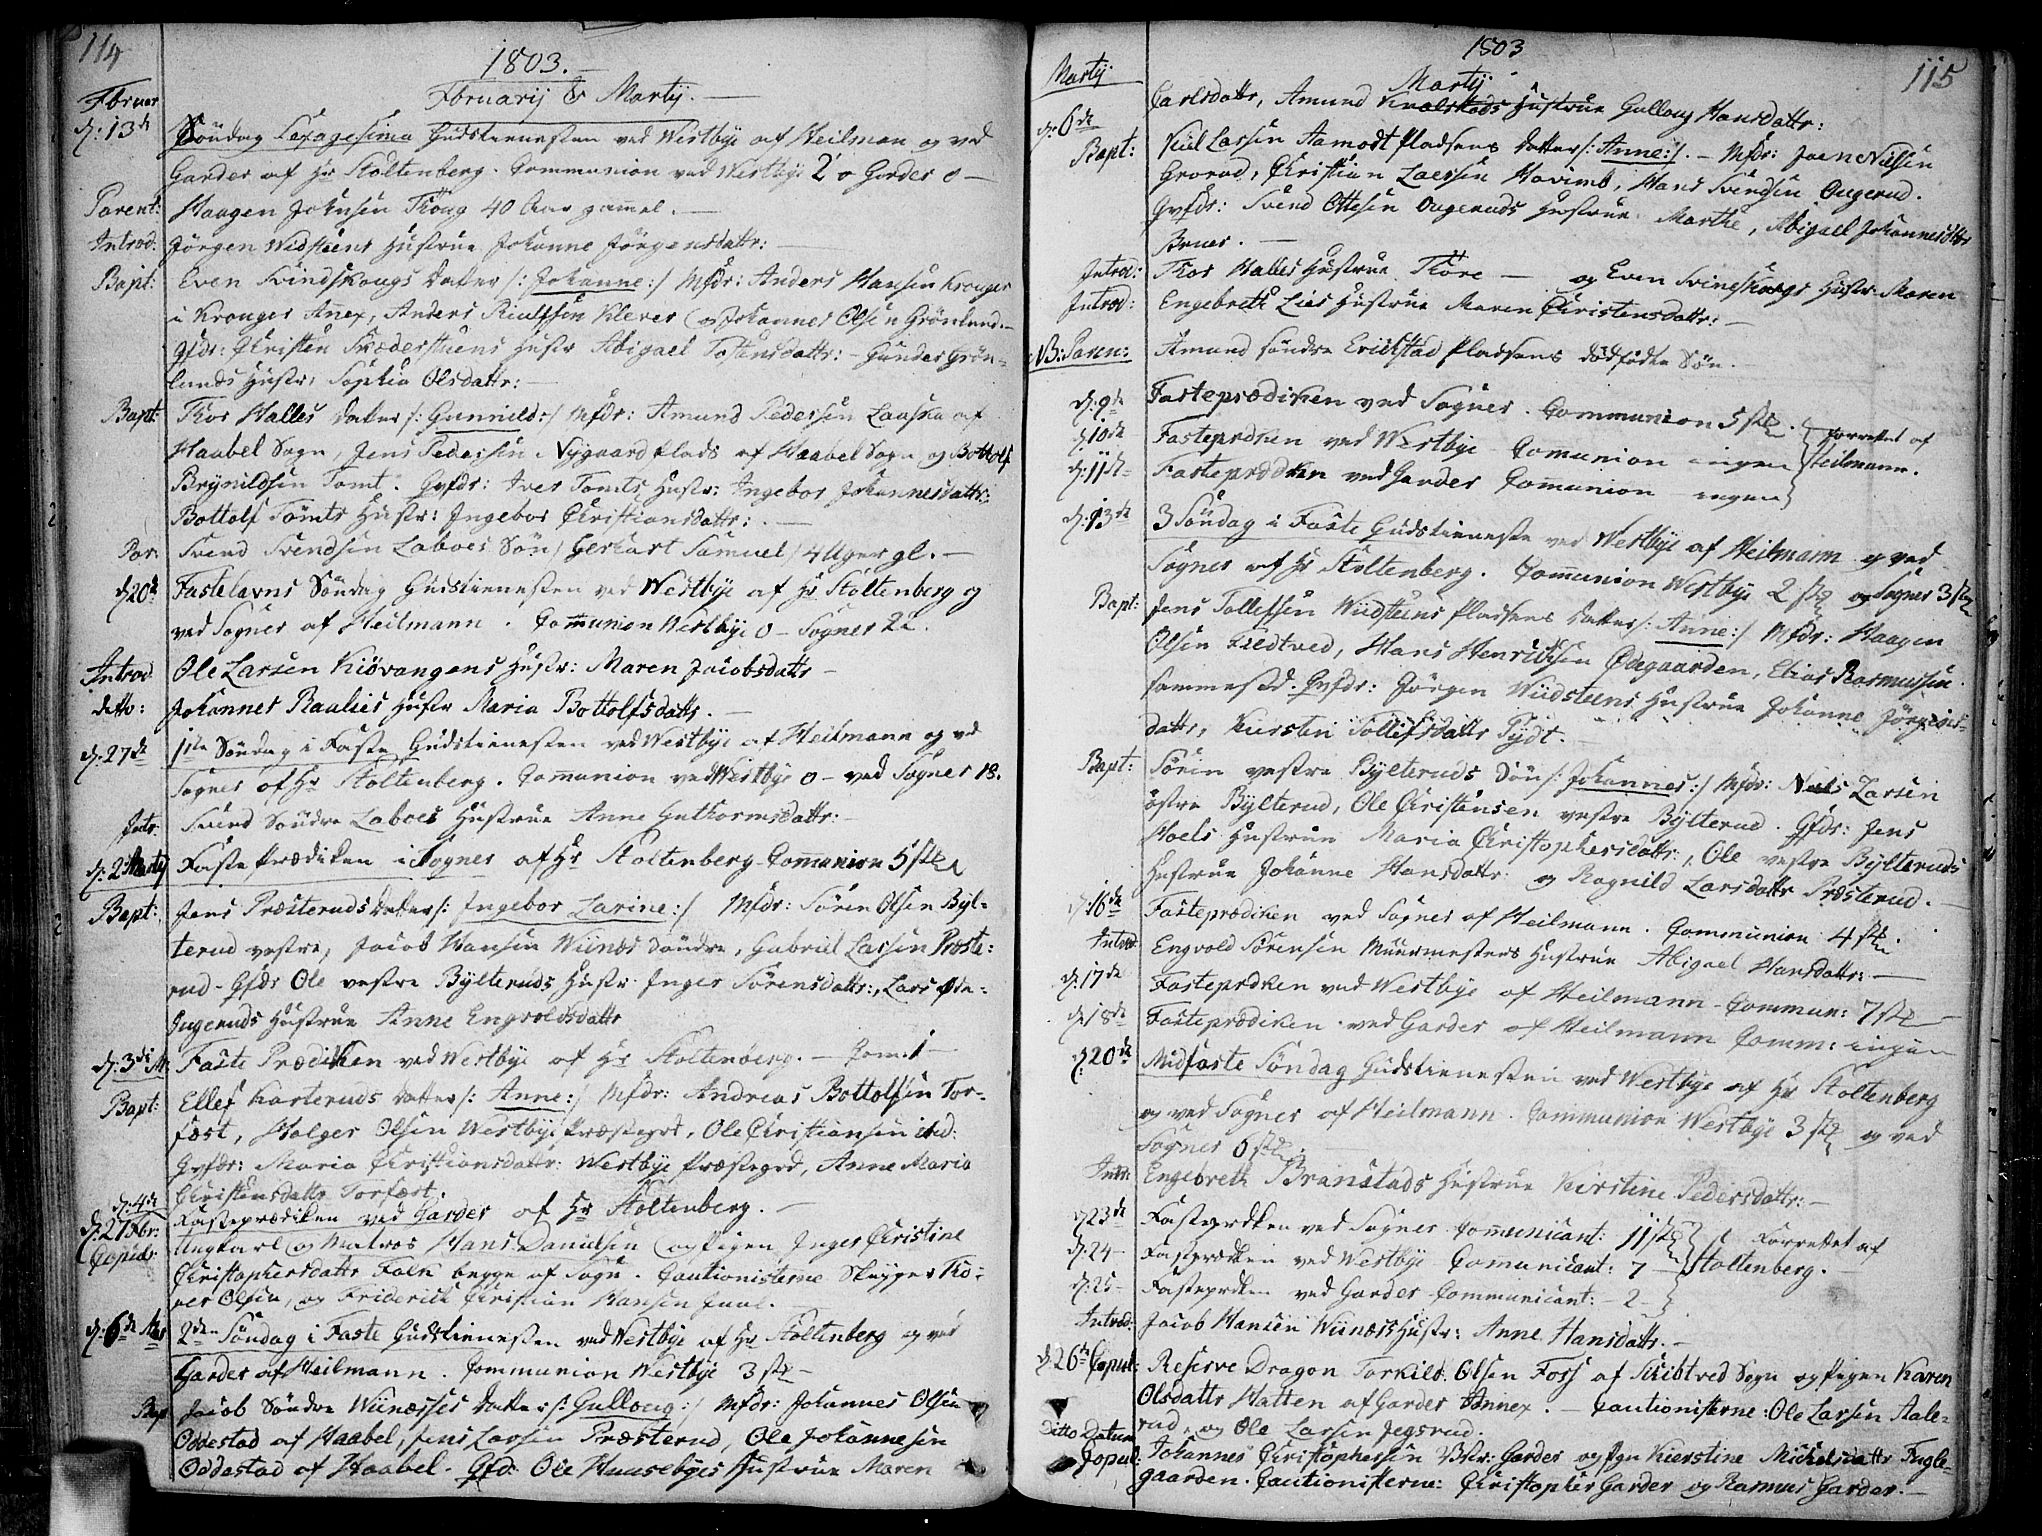 114
1803.
Februarij & Martij.
Februar
d: 13de Söndag Sexagesima Gudstienesten ved Westbye af Heilman og ved
Garder af Hr Stoltenberg. Communion ved Westbye 2 o Garder 0
Parent: Haagen Johnsen Krog 40 Aar gamel.
Introd: Jörgen Widsteens Hustrue Johanne Jörgensdattr:
Bapt: Even Svindskougs datter /: Johanne :/ Mfdr: Anders Hansen Kroger
i Kroger Anex, Anders Klever og Johannes Olsen Grönlund.
Gfdr: Christen Hustr Abigael Gunder Grön-
lunds Hustr: Sophia Olsdattr:
Bapt: Thor Halles datter /: Gunnild :/ Mfdr: Amund Pedersen Laaska af
Haabel Sogn, Jens Pedersen Nygaard Plads af Haabel Sogn og Bottolf
Brynildsen Tomt. Gvfdr: Iver Tomts Hustr: Ingebor Johannesdattr:
Bottolf Tomts Hustr: Ingebor Christiansdattr:
Par: Svend Svendsen Laboes Sön / Gerhart Samuel / 4 Uger gl.
d 20de Fastelavns Söndag Gudstienesten ved Westbye af Hr Stoltenberg og
ved Sogner af Heilmann. Communion Westbye 0 - Sogner 22.
Introd Ole Larsen Kiövangens Hustr: Maren Jacobsdattr
detto: Johannes Raulies Hustr Maria Bottolfsdattr.
d: 27de 1ste Söndag i Faste Gudstienesten ved Westbye af Heilmann og ved
Sogner af Hr Stoltenberg. Communion ved Westbye 0 - ved Sogner 18.
Intr: Svend Söndre Laboes Hustrue Anne Guthormsdattr:
d: 2 Martij Faste Prædiken i Sogner af Hr Stoltenberg Communion 5 stk
Bapt: Jens Præsteruds datter /: Ingebor Larine :/ Mfdr: Sören Olsen Byl-
terud vestre, Jacob Hansen Wiinæs söndre, Gabriel Larsen Præste-
rud - Gfdr Ole vestre Bylteruds Hustr Inger Sörensdattr:, Lars
Ingeruds Hustrue Anne Engvoldsdattr
d: 3die M: Faste Prædiken ved Westbye af Hr Stoltenberg. - Com: 1
Bapt: Ellef Kasteruds datter /: Anne :/ Mfdr: Andreas Bottolfsen Tor-
fest, Holger Olsen Westbye Præstegrd, Ole Christiansen ibid:
Gvfdr: Maria Christiansdattr: Westbye Præstegrd, Anne Maria
Christensdattr Torfæst.
d: 4de Fasteprædiken ved Garder af Hr Stoltenberg.
d. 27 Fbr: Copul: Ungkarl og Matros Hans Danielsen og Pigen Inger Christine
Christophersdattr Falk begge af Sogn. Cautionisterne Skipper
Olsen, og Friderich Christian Hansen Juul.
d: 6de 2den Söndag i Faste Gudstienesten ved Westbye af Hr Stoltenberg og ved
Garder af Heilmann. Communion Westbye 3 stk
Bapt Jacob Söndre Wiinæsses datter /: Gulloug :/ Mfdr: Johannes Olsen
Oddestad af Haabel, Jens Larsen Præsterud, Ole Johannesen
Oddestad af Haabel. Gfdr: Ole Huusebyes Hustrue Maren
1803
115
Martij
Martij
d: 6de Carlsdattr, Amund Hustrue Gulloug Hansdattr:
Bapt: Kiil Larsen Aamodt Pladsens datter /: Anne :/. - Mfdr: Joen Nielsen
Grorud, Christian Larsen Havimb, Hans Svendsen Ougerud.
Gvfdr: Svend Ottesen Ougeruds Hustrue Marthe, Abigael Johannesdttr
Bruer.
Introd: Thor Halles Hustrue Thore - og Even Svinesskougs Hustr Maren
Introd: Engebreth Lies Hustrue Maren Christensdattr:
NB: Paren: Amund söndre Erichstad Pladsens dödfödte Sön.
d: 9de Fasteprædiken ved Sogner. Communion 5 stk.
d: 10de Fasteprdken ved Westbye Communion ingen } forrettet af
d: 11te Fasteprædken ved Garder Communion ingen } Heilmann.
d: 13de 3 Söndag i Faste Gudstieneste ved Westbye af Heilmann og ved
Sogner af Hr Stoltenberg. Communion Westbye 2 stk og Sogner 3 stk
Bapt: Jens Tollefsen Wiidsteens Pladsens datter /: Anne :/ Mfdr: Haagen
Olsen Fledtved, Hans Henrichsen Ödegaarden, Elias Rasmussen
sammested. Gvfdr: Jörgen Wiidsteens Hustrue Johanne Jörgens-
dattr, Kiersten Tollefsdattr Tydt.
Bapt: Sören vestre Bylteruds Sön /: Johannes :/ Mfdr: Niels Larsen
östre Bylterud, Ole Christensen vestre Bylterud. Gfdr: Jens
Hoels Hustrue Maria Christophersdattr:, Ole vestre Bylteruds
Hustrue Johanne Hansdattr og Ragnild Larsdattr Præsterud.
d: 16de Fasteprædiken ved Sogner af Heilmann. Communion 4 stk.
Introd Engvold Sörensen Muurmesters Hustrue Abigael Hansdattr:
d: 17de Fasteprdken ved Westbye af Heilmann - Commun: 7 stk
d: 18de Fasteprædiken ved Garder af Heilmann Comm: ingen
d: 20de Midfaste Söndag Gudstienesten ved Westbye af Hr Stoltenberg
og ved Sogner af Heilmann. Communion Westbye 3 stk og ved
Sogner 6 stk.
Intr: Engebreth Branstads Hustrue Kirstine Pedersdattr:
d 23de Fasteprdken ved Sogner Communicant: 11 stk } Forrettet af
d: 24 - Fasteprdken ved Westbye Comunicant: 7 - } Stoltenberg.
d: 25 - Fasteprdken ved Garder Communicant: - 2 - }
Introd: Jacob Hansen Wiinæs Hustr: Anne Hansdattr.
d. 26de Copul: Reserve Dragon Torkild Olsen Foss af Skibtved Sogn og Pigen Karen
Olsdattr Hatten af Garder Annex. - Cautionisterne: Ole Larsen Aale-
rud, og Ole Larsen Jegsrud.
Ditto Datum Copul: Johannes Christophersen Garder og Pgn Kierstine Michelsdattr Fugle-
gaarden. Cautionisterne: Christopher Garder og Rasmus Garder.